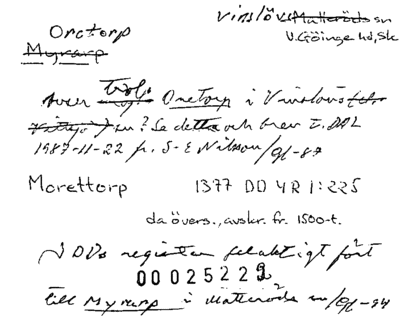 Vinslövs Matteröds sn
Oretorp
V. Göinge hd, Sk
Myrarp
avser trol. Oretorp i Vinslövs
sn? Se detta och brev t. DAL
1987-11-22 fr. S-E Nilsson/GL-87
Morettorp 1377 DD 4R I:225
da övers., avskr. fr. 1500-t.
I DDs registen felaktigt fört
00025222
till Myrarp i Matteröds sn/GL-94